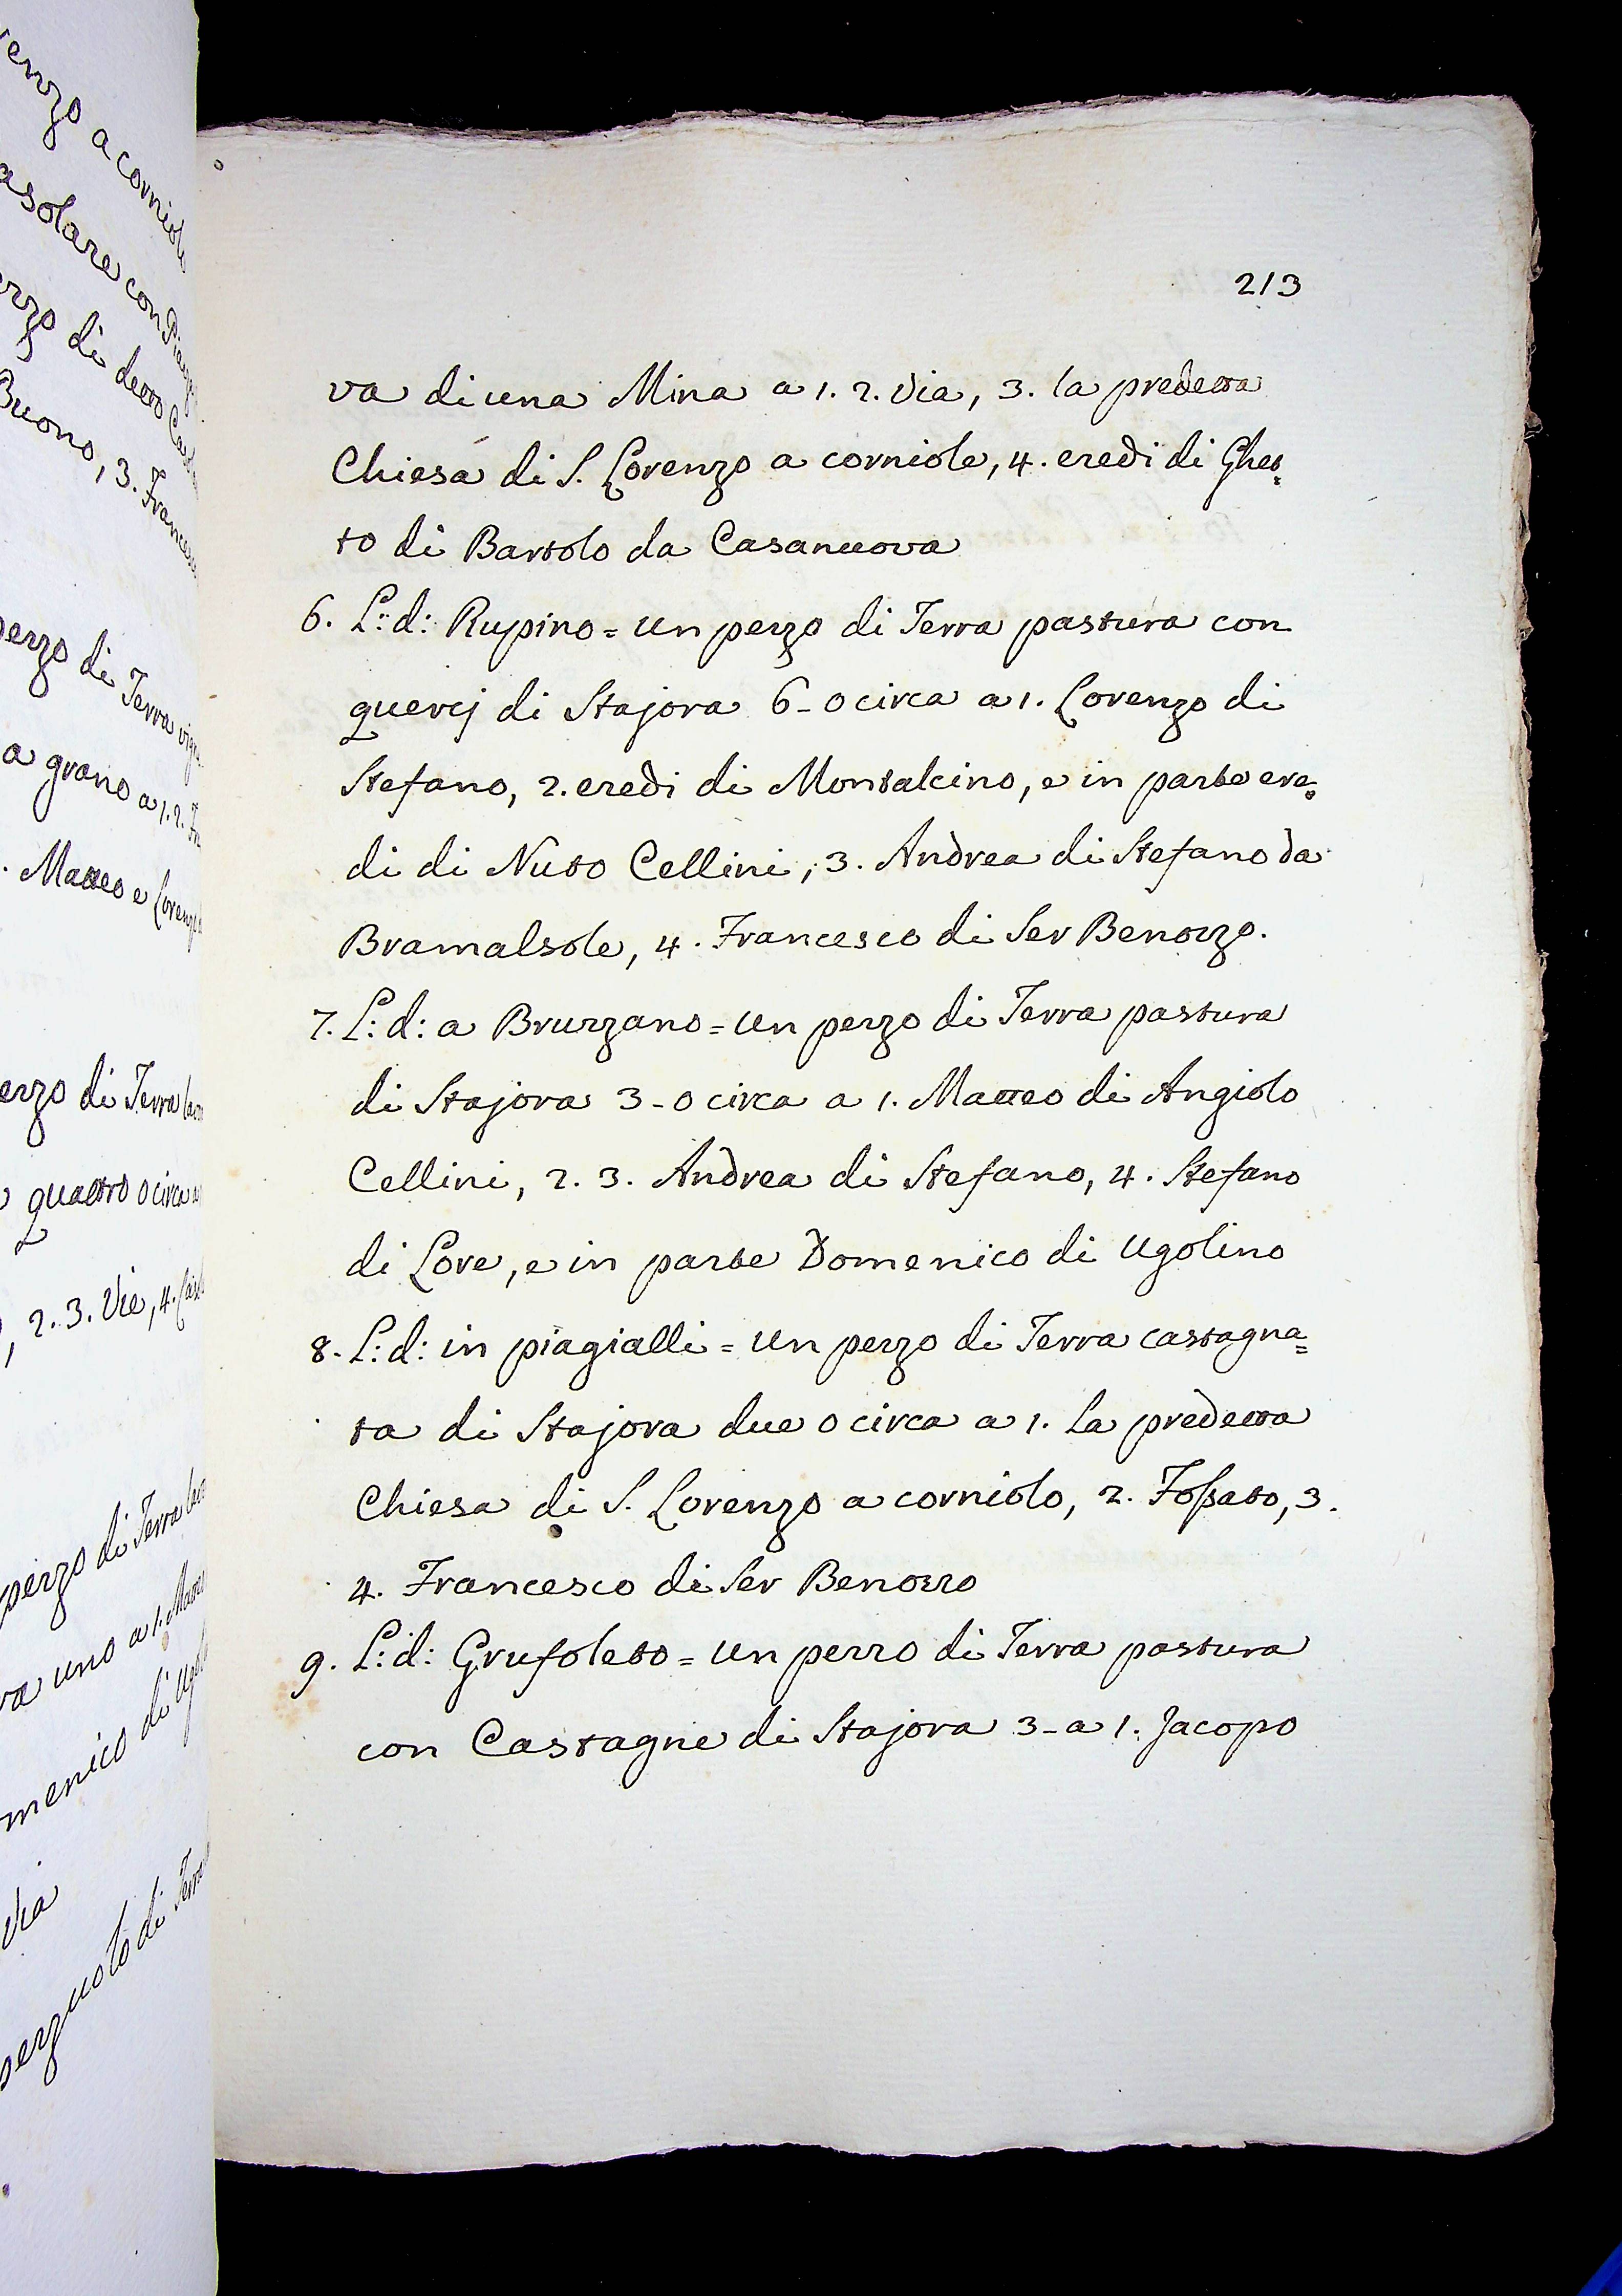 enzo a corniole
asolare con Piagg
ezzo di detto Cas
Buono, 3. Frances
pezzo di Terra vign
a grano a 1. 2.
. Matteo e Lorenzo
ezzo di Terra
quattro o circa a
, 2. 3. Vie, 4.
pezzo di Terra
ra uno a 1. Matte
menico di Ugol
Via
pezzuolo di Terra
213
va di una Mina a 1. 2. Via, 3. la predetta
Chiesa di S. Lorenzo a corniole, 4. eredi di Ghet=
to di Bartolo da Casanuova
6. L: d: Rupino = un pezzo di Terra pastura con
quercj di Stajora 6 - o circa a 1. Lorenzo di
Stefano, 2. eredi di Montalcino, e in parte ere=
di di Nuto Cellini, 3. Andrea di Stefano da
Bramalsole, 4. Francesco di Ser Benozzo.
7. L: d: a Bruzzano = un pezzo di Terra pastura
di Stajora 3 - o circa a 1. Matteo di Angiolo
Cellini, 2. 3. Andrea di Stefano, 4. Stefano
di Lore, e in parte Domenico di Ugolino
8. L: d: in piagialli = un pezzo di Terra castagna=
ta di Stajora due o circa a 1. la predetta
Chiesa di S. Lorenzo a corniolo, 2. Foſsato, 3.
4. Francesco di Ser Benozzo
9. L: d: Grufoleto = un pezzo di Terra pastura
con Castagne di Stajora 3 - a 1. Jacopo